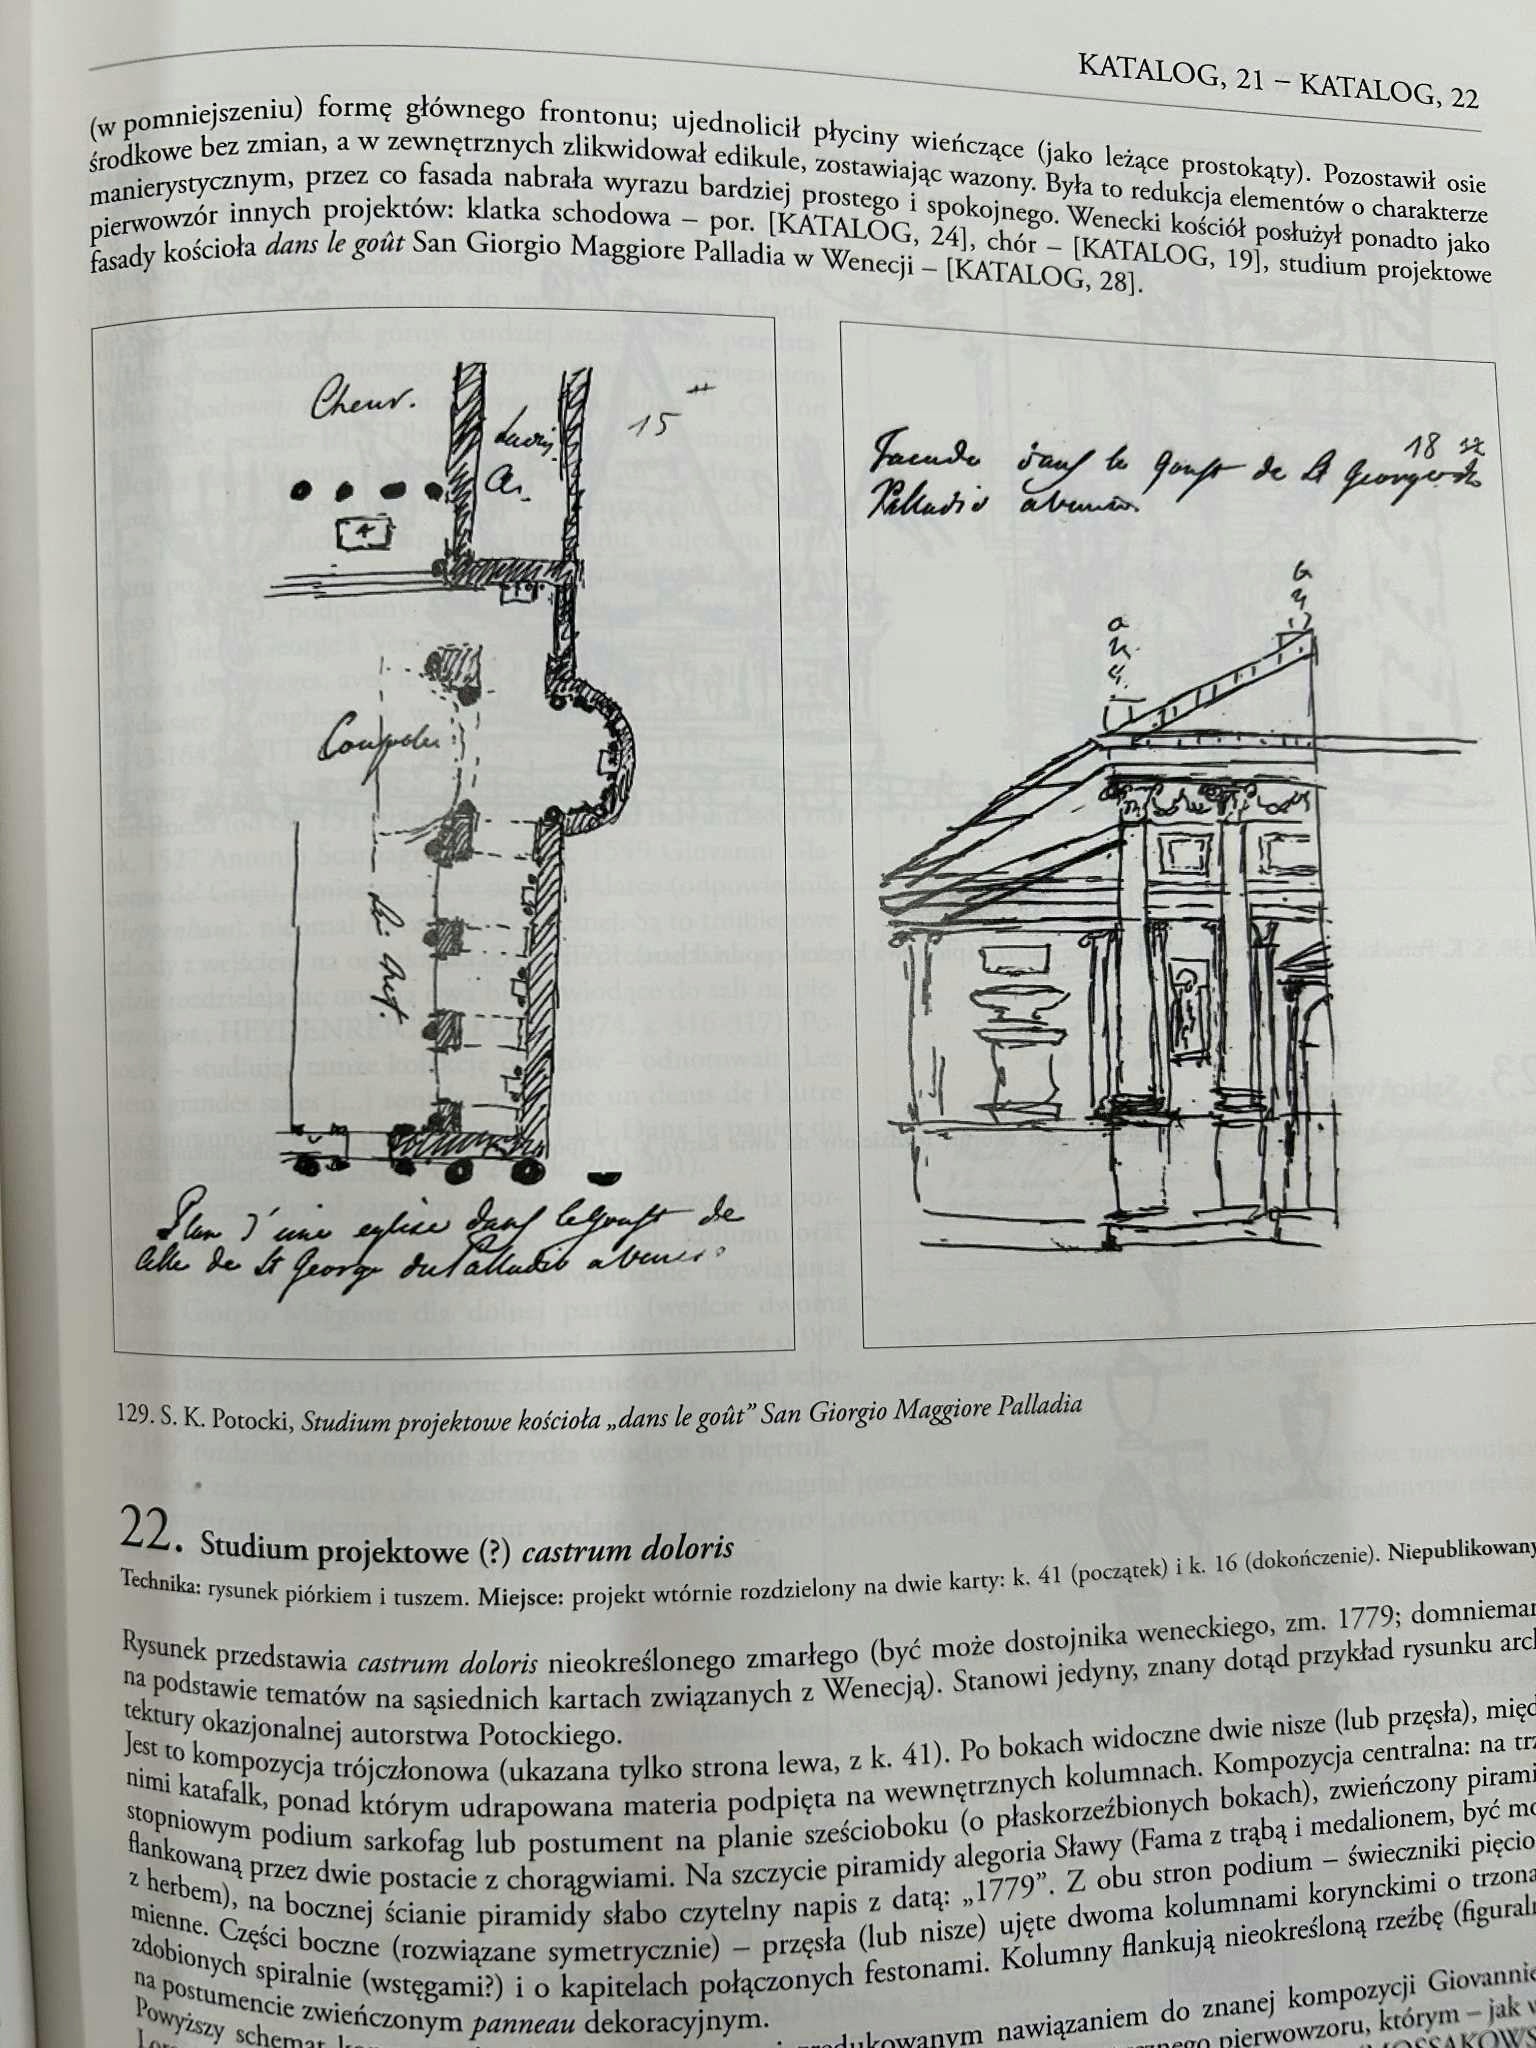 KATALOG, 21 – KATALOG, 22
(w pomniejszeniu) formę głównego frontonu; ujednolicił płyciny wieńczące (jako leżące prostokąty). Pozostawił osie
środkowe bez zmian, a w zewnętrznych zlikwidował edikule, zostawiając wazony. Była to redukcja elementów o charakterze
manierystycznym, przez co fasada nabrała wyrazu bardziej prostego i spokojnego. Wenecki kościół posłużył ponadto jako
pierwowzór innych projektów: klatka schodowa – por. [KATALOG, 24], chór – [KATALOG, 19], studium projektowe
fasady kościoła dans le goût San Giorgio Maggiore Palladia w Wenecji – [KATALOG, 28].
Cheur.
15
4
Coupole
18
dans le goust de St George
Palladio
Plan d'une eglise dans le goust de
celle de St George du Palladio a
129. S. K. Potocki, Studium projektowe kościoła „dans le goût” San Giorgio Maggiore Palladia
22. Studium projektowe (?) castrum doloris
Technika: rysunek piórkiem i tuszem. Miejsce: projekt wtórnie rozdzielony na dwie karty: k. 41 (początek) i k. 16 (dokończenie). Niepublikowany
Rysunek przedstawia castrum doloris nieokreślonego zmarłego (być może dostojnika weneckiego, zm. 1779; domnieman
na podstawie tematów na sąsiednich kartach związanych z Wenecją). Stanowi jedyny, znany dotąd przykład rysunku arc
tektury okazjonalnej autorstwa Potockiego.
Jest to kompozycja trójczłonowa (ukazana tylko strona lewa, z k. 41). Po bokach widoczne dwie nisze (lub przęsła), międ
nimi katafalk, ponad którym udrapowana materia podpięta na wewnętrznych kolumnach. Kompozycja centralna: na trz
stopniowym podium sarkofag lub postument na planie sześcioboku (o płaskorzeźbionych bokach), zwieńczony pirami
flankowaną przez dwie postacie z chorągwiami. Na szczycie piramidy alegoria Sławy (Fama z trąbą i medalionem, być mo
z herbem), na bocznej ścianie piramidy słabo czytelny napis z datą: „1779”. Z obu stron podium – świeczniki pięcio
mienne. Części boczne (rozwiązane symetrycznie) – przęsła (lub nisze) ujęte dwoma kolumnami korynckimi o trzona
zdobionych spiralnie (wstęgami?) i o kapitelach połączonych festonami. Kolumny flankują nieokreśloną rzeźbę (figuraln
na postumencie zwieńczonym panneau dekoracyjnym.
Powyższy schemat nawiązaniem do znanej kompozycji Giovannie
pierwowzoru, którym – jak w